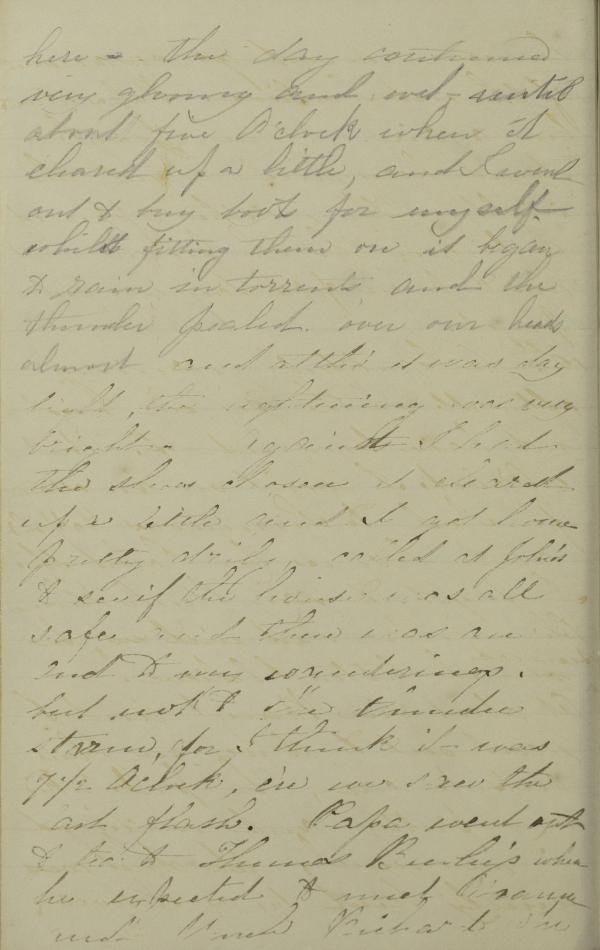 here - the day continued
very gloomy and wet - until
about five O'clock when it
cleared up a little, and I went
out to buy boots for myself.
whilst fitting them on it began
to rain in torrents and the
thunder pealed over our heads
almost and altho' it was day
light, the lightning was very
bright - against I had
the shoes chosen it cleared
up a little and I got home
pretty drily, called at John's
to see if the house was all
safe and there was an
end to my wanderings.
but not to the thunder
storm, for I think it was
7 1/2 O'clock, ere we saw the
last flash. Papa went out
to tea to Thomas when
he expected to meet
and Uncle Richard